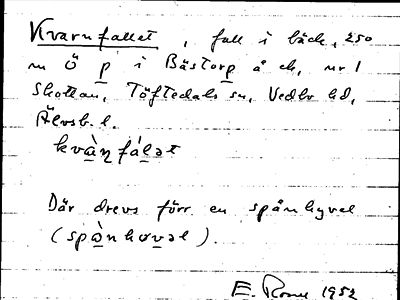 Kvarnfallet, fall i bäck, 250
m Ö p i Bästorp å ek, nr 1
Skottan, Töftedals sn, Vedbo hd,
Älvsb. l.
kvàņfáḷət
Där drevs förr en spånhyvel
(spànhøvəl).
E. 1952